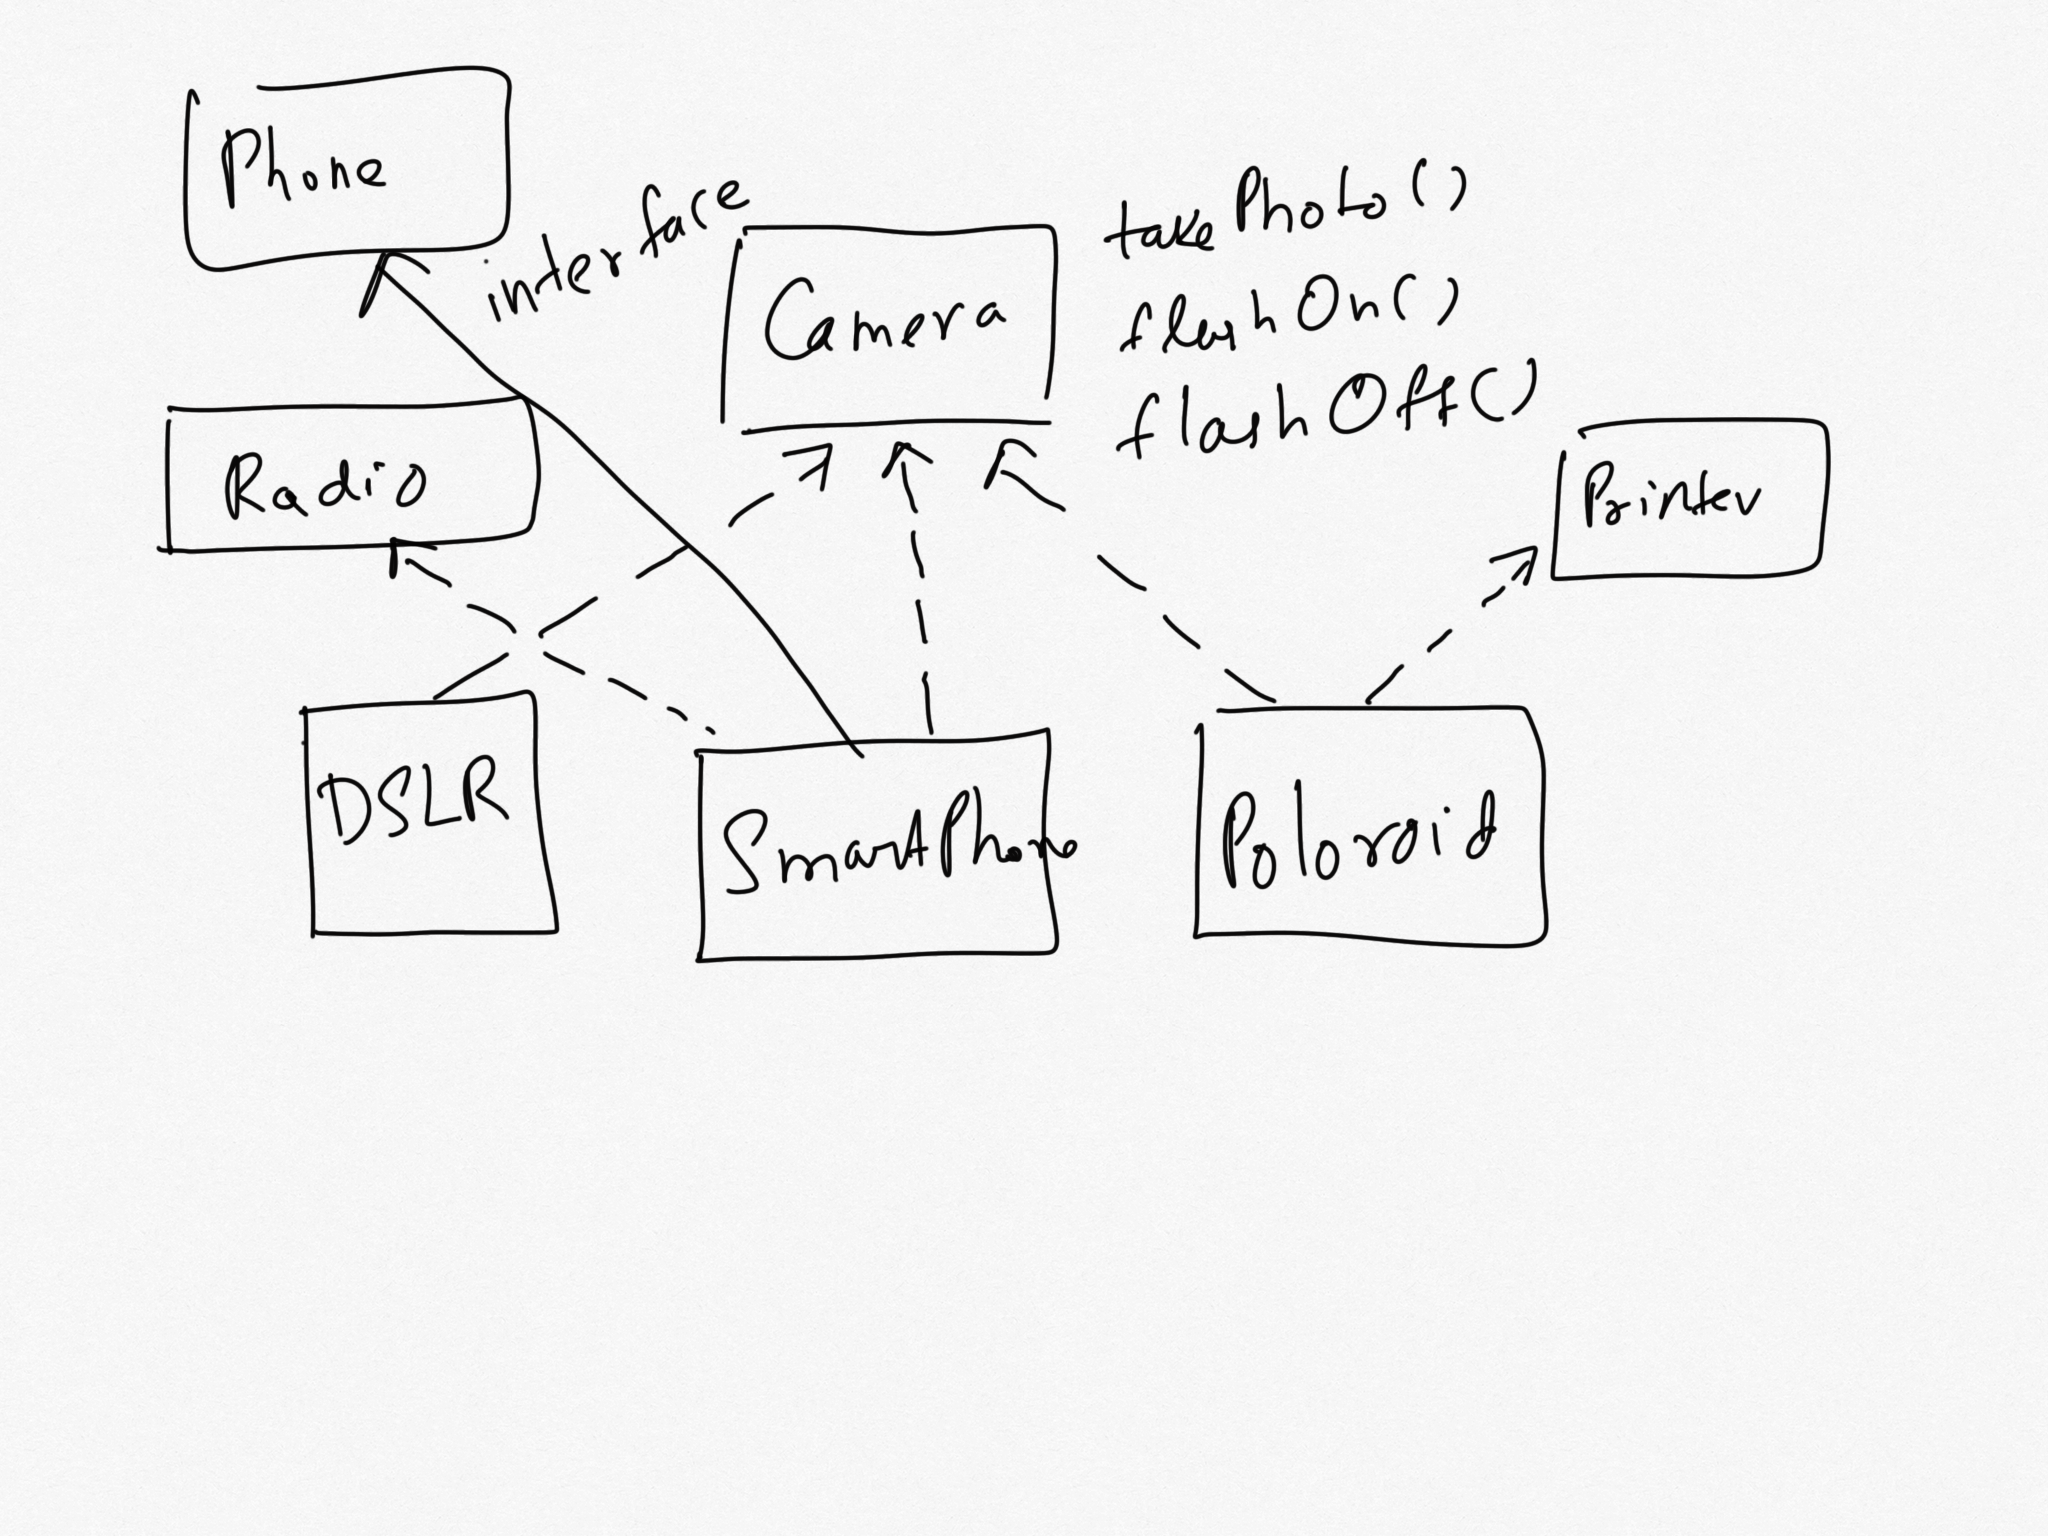 Phone
interface
Camera
takePhoto()
flashOn()
flashOff()
Radio
Printer
DSLR
SmartPhone
Poloroid